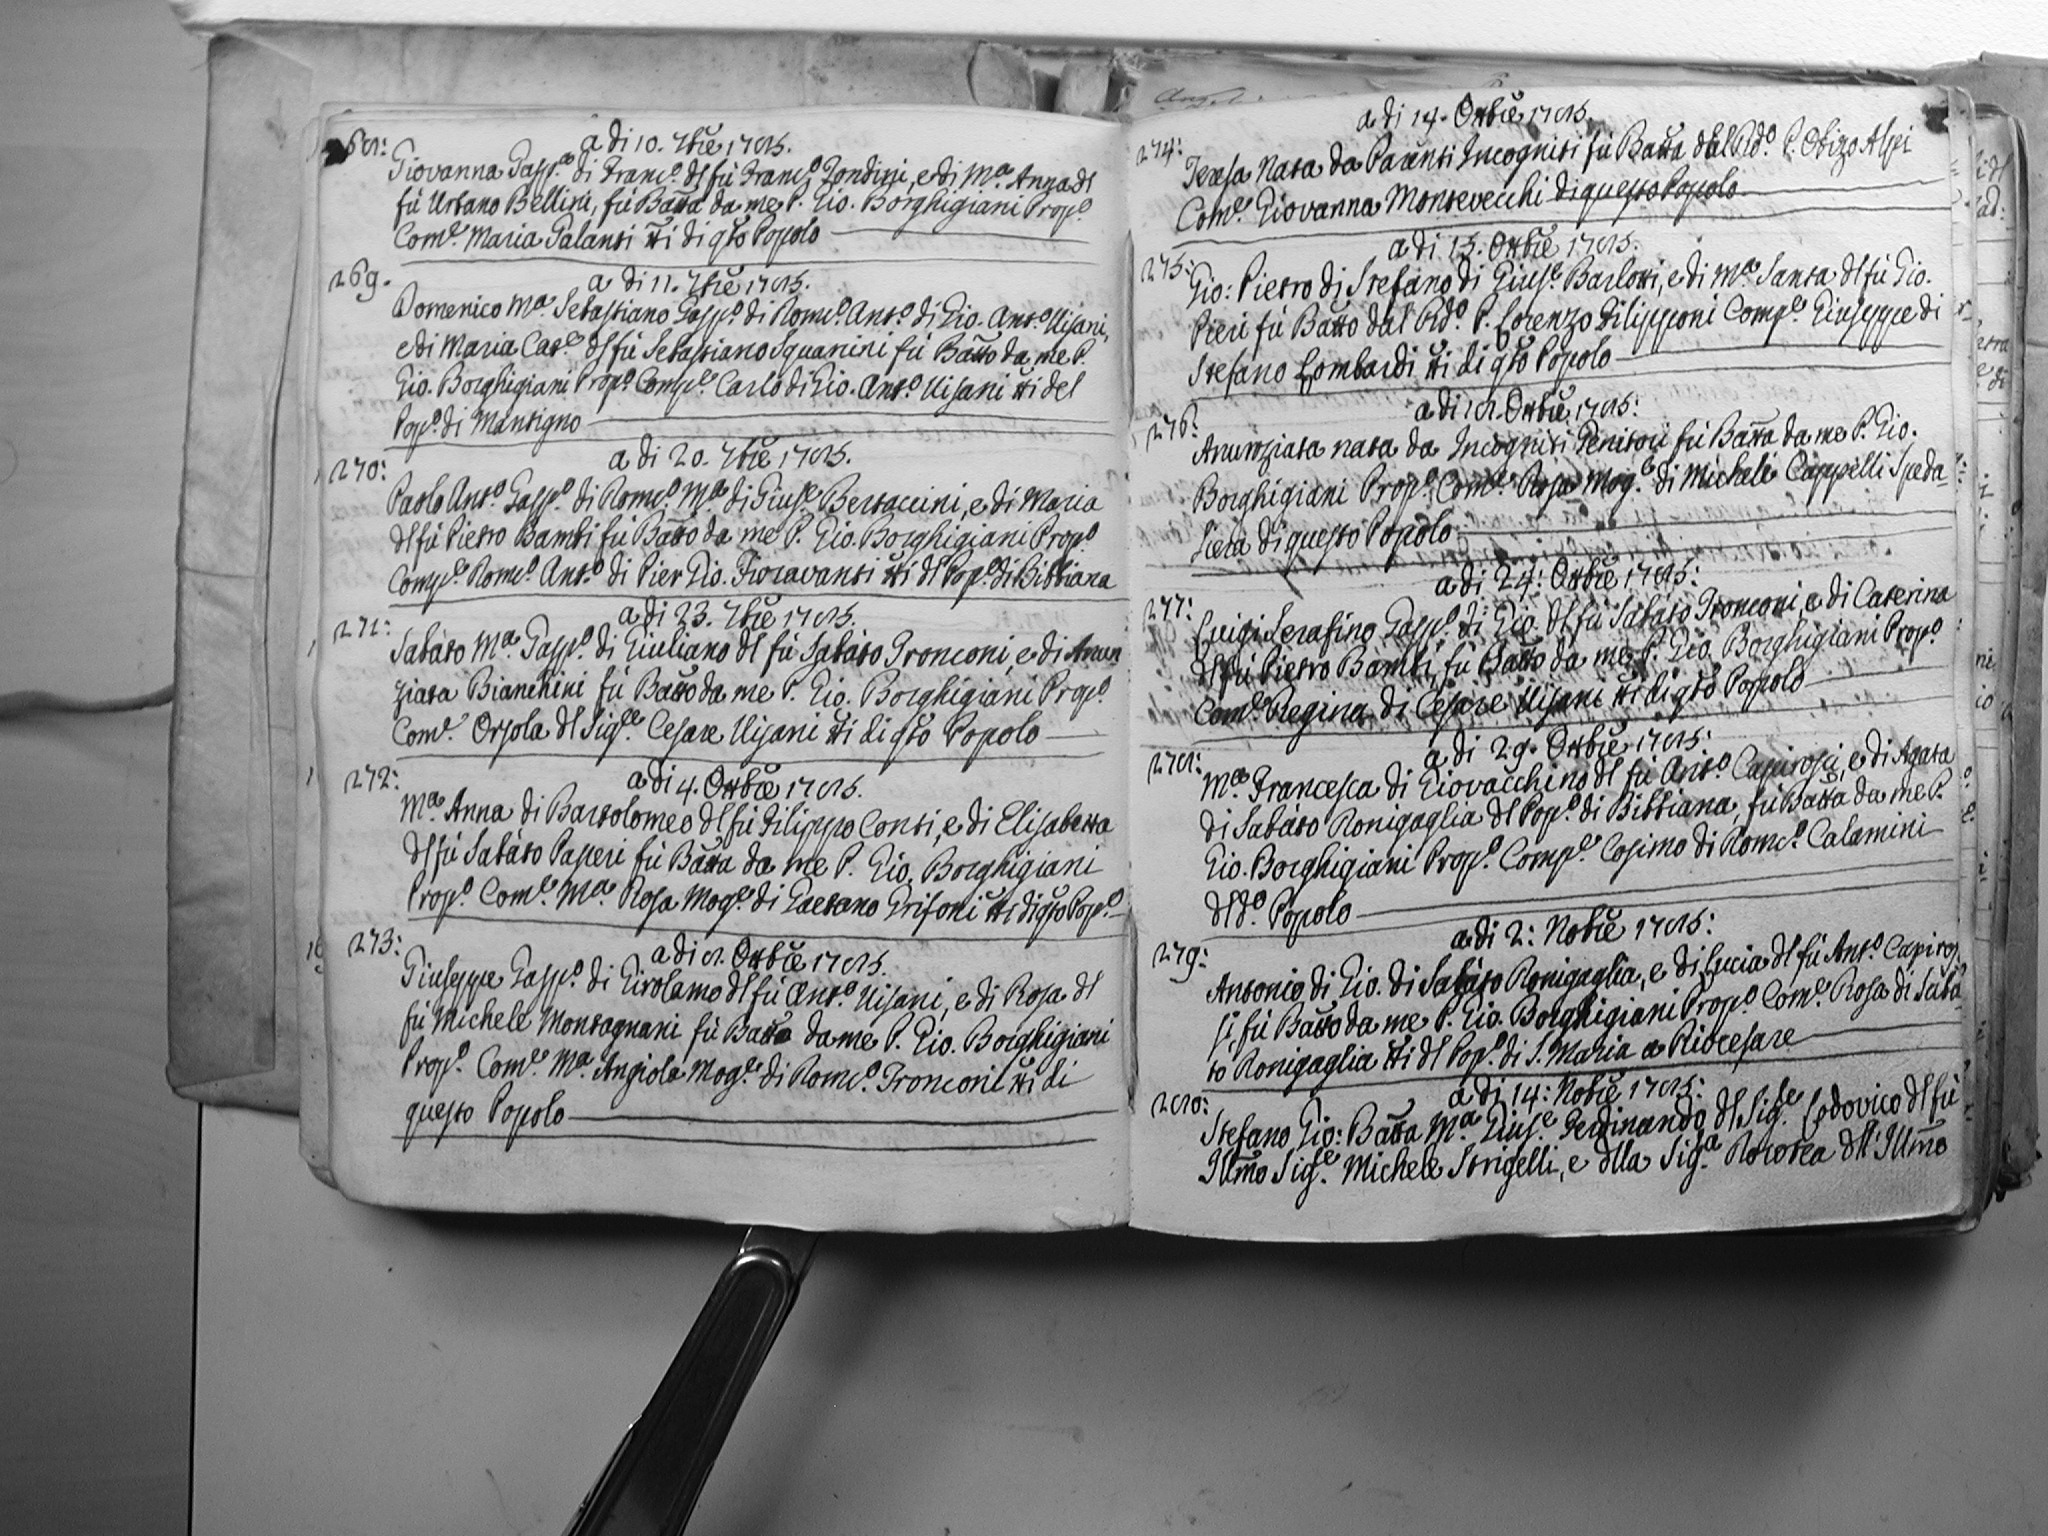 268:
a di 10. 7bre 1785.
Giovanna Gasp.ra di Franc.o dl fù Franc.o Zondini, e di M.a Anna dl
fù Urbano Bellini, fù Batta da me P. Gio. Borghigiani Prop.o
Com.e Maria Galanti tti di qto Popolo
269.
a di 11. 7bre 1785.
Domenico M.a Sebastiano Gasp.o di Dom.co Ant.o di Gio. Ant.o Visani,
e di Maria Cat.a dl fù Sebastiano Squanini fù Batto da me P.
Gio. Borghigiani Prop.o Comp.e Carlo di Gio. Ant.o Visani tti del
Pop.o di Mantigno
270:
a di 20. 7bre 1785.
Paolo Ant.o Gasp.o di Dom.co M.a di Gius.e Bertaccini, e di Maria
dl fù Pietro Bambi fù Batto da me P. Gio. Borghigiani Prop.o
Comp.e Dom.co Ant.o di Pier Gio. Fioravanti tti dl Pop.o di Bibbiana
271:
a di 23. 7bre 1785.
Sabato M.a Gasp.o di Giuliano dl fù Sabato Tronconi, e di Anun
ziata Bianchini fù Batto da me P. Gio. Borghigiani Prop.o
Com.e Orsola dl Sig.e Cesare Visani tti di qto Popolo
272:
a di 4. Ottbre 1785.
M.a Anna di Bartolomeo dl fù Filippo Conti, e di Elisabetta
dl fù Sabato Paperi fù Batta da me P. Gio. Borghigiani
Prop.o Com.e M.a Rosa Mog.e di Gaetano Grifoni tti di qto Pop.o
273:
a di 8. Ottbre 1785.
Giuseppe Gasp.o di Girolamo dl fù Ant.o Visani, e di Rosa dl
fù Michele Montagnani fù Batto da me P. Gio. Borghigiani
Prop.o Com.e M.a Angiola Mog.e di Dom.co Tronconi tti di
questo Popolo
274:
a di 14. Ottbre 1785.
Teresa Nata da Parenti Incogniti fù Batta dal Rd.o P. Obizo Alpi
Com.e Giovanna Montevecchi di questo Popolo
275:
a di 15. Ottbre 1785:
Gio: Pietro di Stefano di Gius.e Barlotti, e di M.a Santa dl fù Gio.
Pieri fù Batto dal Rd.o P. Lorenzo Filipponi Comp.e Giuseppe di
Stefano Lombardi tti di qto Popolo
276:
a di 18. Ottbre 1785:
Anunziata nata da Incogniti Genitori fù Batta da me P. Gio.
Borghigiani Prop.o Com.e Rosa Mog.e di Michele Cappelli Speda-
liera di questo Popolo
277:
a di 24: Ottbre 1785:
Luigi Serafino Gasp.o di Gio. dl fù Sabato Tronconi, e di Caterina
dl fù Pietro Bambi, fù Batto da me P. Gio. Borghigiani Prop.o
Com.e Regina di Cesare Visani tti di qto Popolo
278:
a di 29. Ottbre 1785:
M.a Francesca di Giovacchino dl fù Ant.o Capirossi, e di Agata
di Sabato Ronigaglia dl Pop.o di Bibbiana, fù Batta da me P.
Gio. Borghigiani Prop.o Comp.e Cosimo di Dom.co Calamini
dl d.o Popolo
279:
a di 2: Nobre 1785:
Antonio di Gio. di Sabato Ronigaglia, e di Lucia dl fù Ant.o Capiros
si fù Batto da me P. Gio. Borghigiani Prop.o Com.e Rosa di Saba-
to Ronigaglia tti dl Pop.o di S. Maria a Riocesare
280:
a di 14: Nobre 1785:
Stefano Gio: Batta M.a Gius.e Ferdinando dl Sig.e Lodovico dl fù
Illmo Sig.e Michele Strigelli, e dlla Sig.a Dorotea dll' Illmo